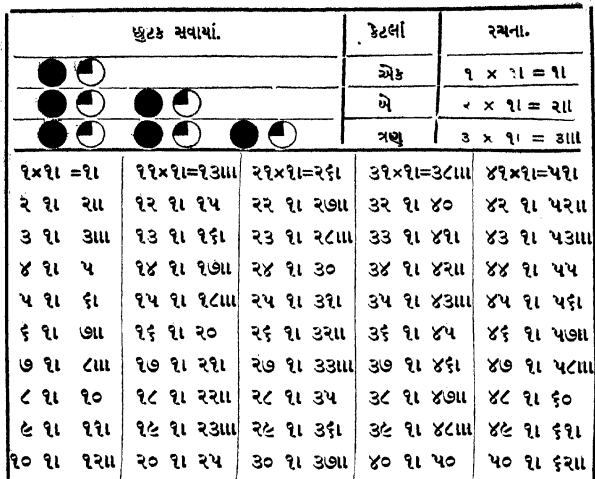 છુટક સવાયાં. કેટલાં રચના.
એક ૧ × ૧। = ૧।
બે ૨ × ૧। = ૨॥
ત્રણ ૩ × ૧। = ૩॥।
૧×૧। =૧। ૧૧×૧।=૧૩॥। ૨૧×૧।=૨૬। ૩૧×૧।=૩૮॥। ૪૧×૧।=૫૧।
૨ ૧। ૨॥ ૧૨ ૧। ૧૫ ૨૨ ૧। ૨૭॥ ૩૨ ૧। ૪૦ ૪૨ ૧। ૫૨॥
૩ ૧। ૩॥। ૧૩ ૧। ૧૬। ૨૩ ૧। ૨૮॥। ૩૩ ૧। ૪૧। ૪૩ ૧। ૫૩॥।
૪ ૧। ૫ ૧૪ ૧। ૧૭॥ ૨૪ ૧। ૩૦ ૩૪ ૧। ૪૨॥ ૪૪ ૧। ૫૫
૫ ૧। ૬। ૧૫ ૧। ૧૮॥। ૨૫ ૧। ૩૧। ૩૫ ૧। ૪૩॥। ૪૫ ૧। ૫૬।
૬ ૧। ૭॥ ૧૬ ૧। ૨૦ ૨૬ ૧। ૩૨॥ ૩૬ ૧। ૪૫ ૪૬ ૧। ૫૭॥
૭ ૧। ૮॥। ૧૭ ૧। ૨૧। ૨૭ ૧। ૩૩॥। ૩૭ ૧। ૪૬। ૪૭ ૧। ૫૮॥।
૮ ૧। ૧૦ ૧૮ ૧। ૨૨॥ ૨૮ ૧। ૩૫ ૩૮ ૧। ૪૭॥ ૪૮ ૧। ૬૦
૯ ૧। ૧૧। ૧૯ ૧। ૨૩॥। ૨૯ ૧। ૩૬। ૩૯ ૧। ૪૮॥। ૪૯ ૧। ૬૧।
૧૦ ૧। ૧૨॥ ૨૦ ૧। ૨૫ ૩૦ ૧। ૩૭॥ ૪૦ ૧। ૫૦ ૫૦ ૧। ૬૨॥